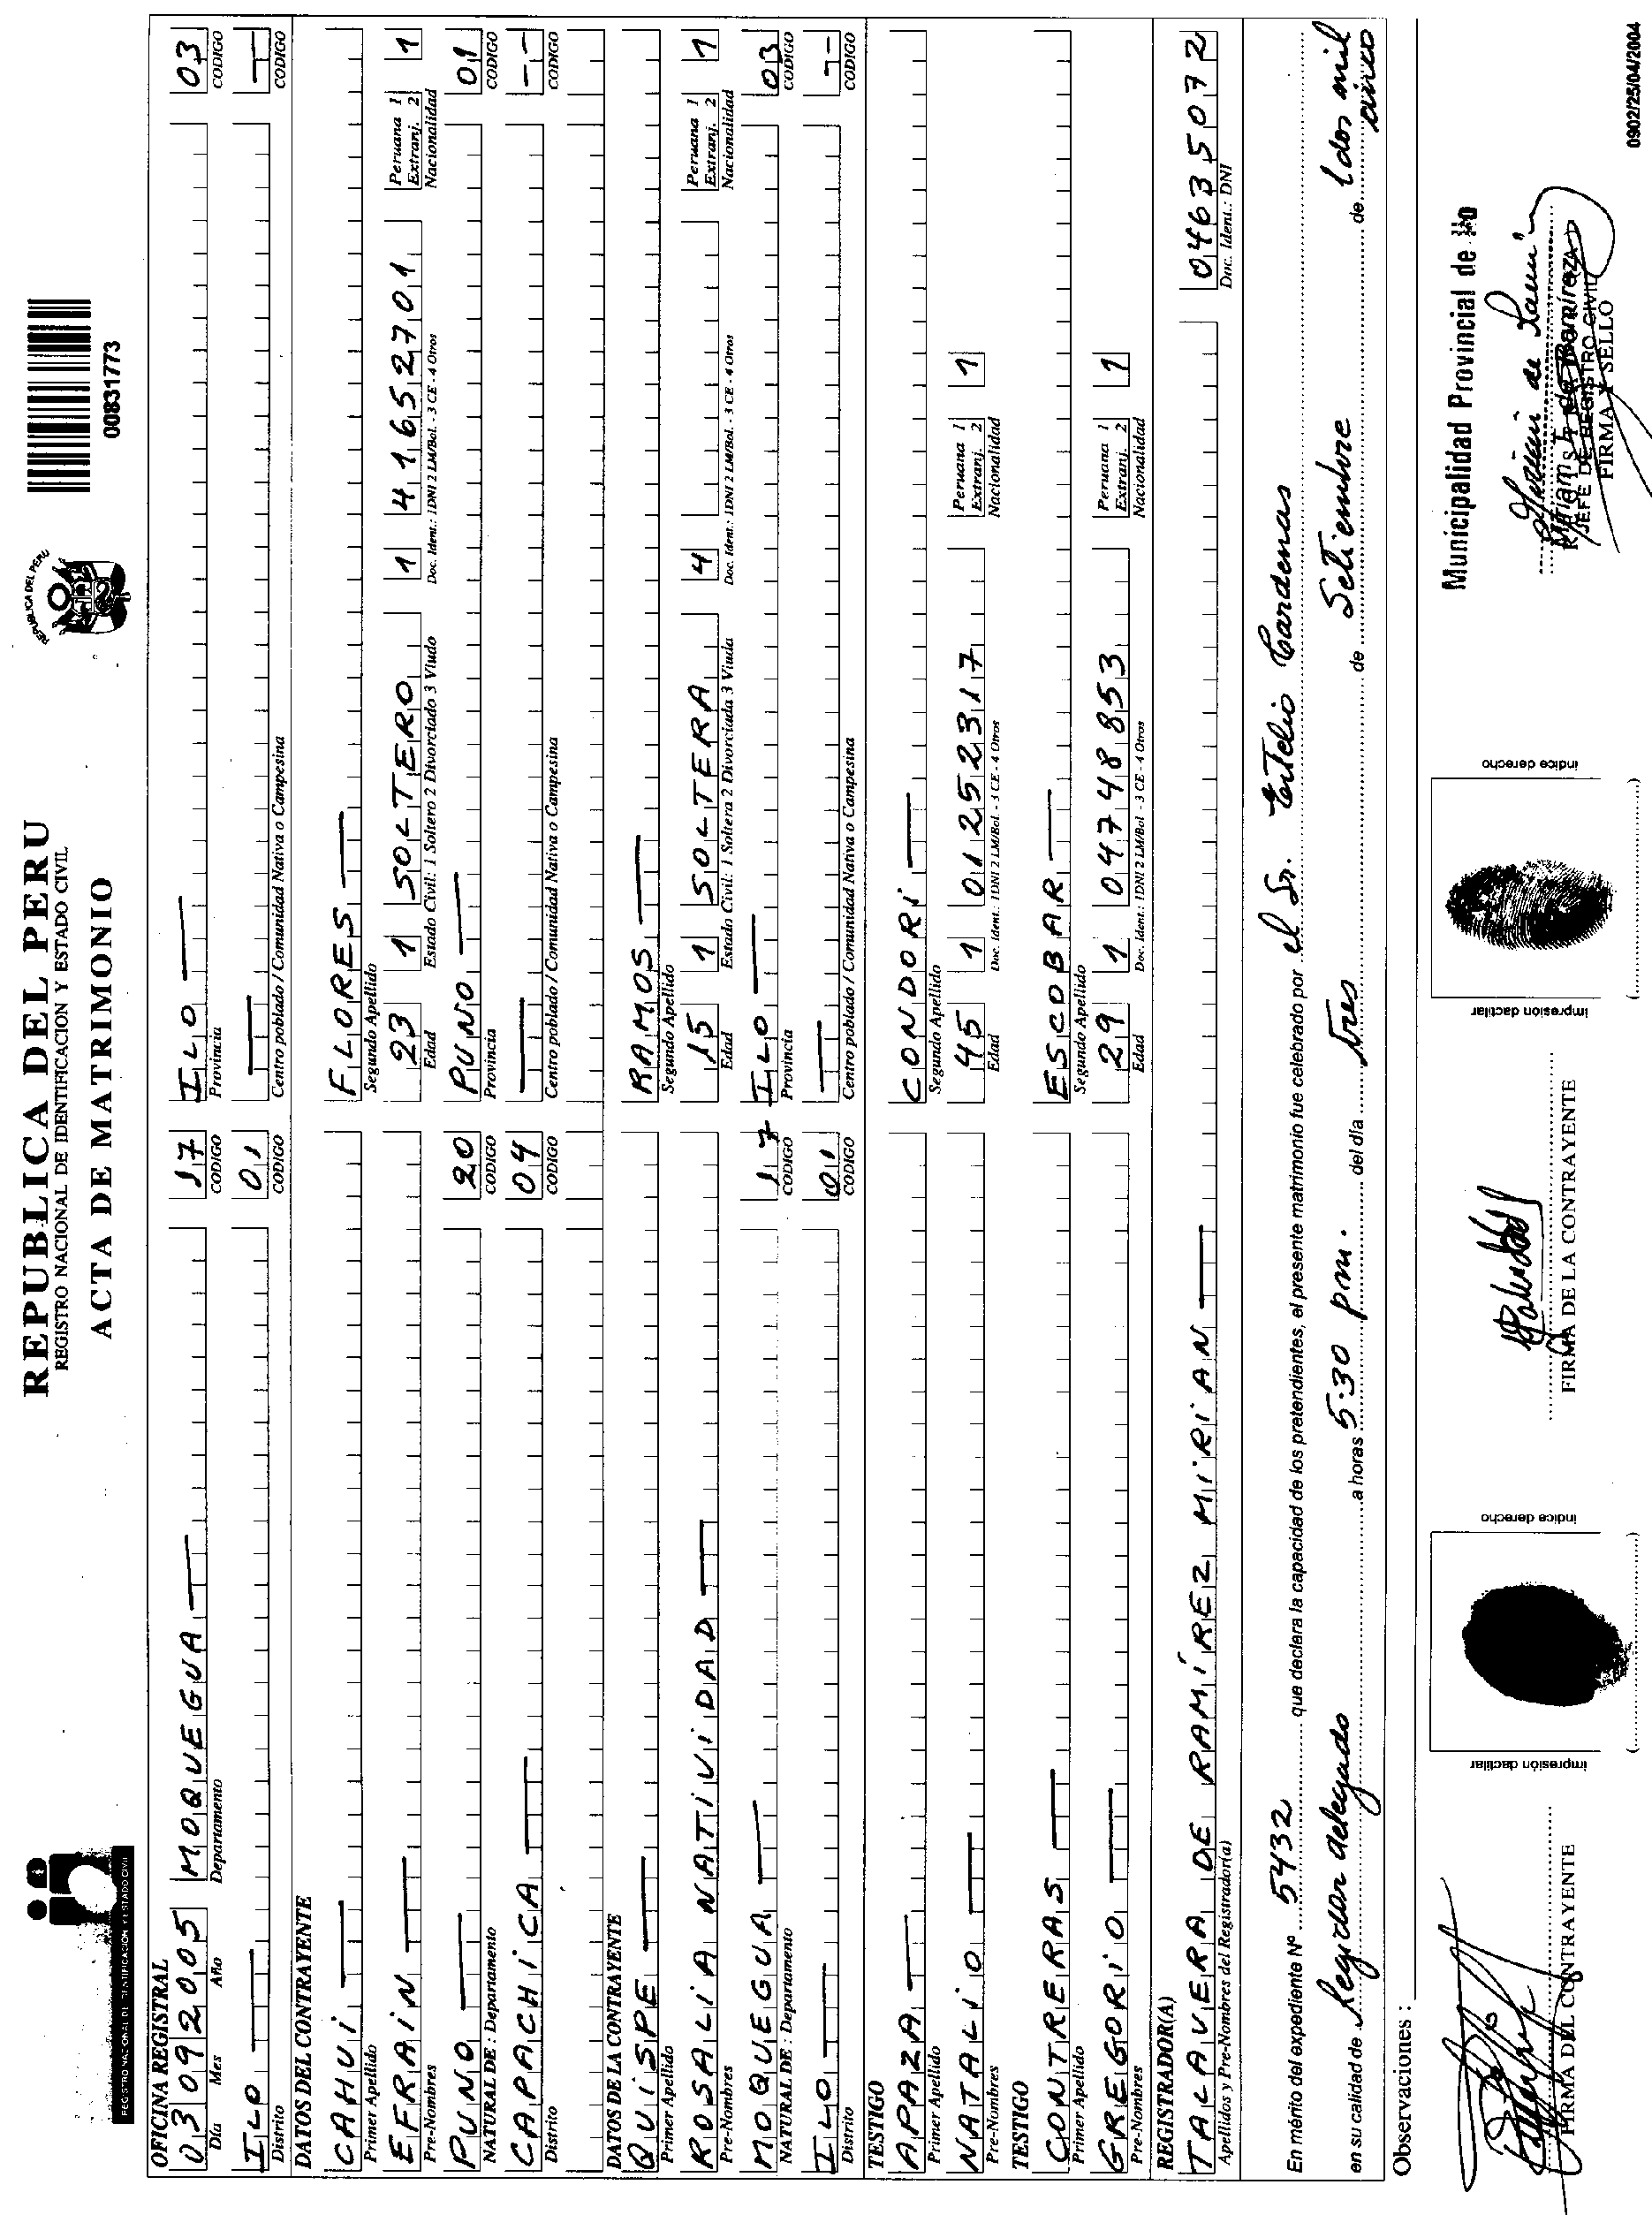 REPUBLICA DEL PERU
REGISTRO NACIONAL DE IDENTIFICACION Y ESTADO CIVIL
ACTA DE MATRIMONIO
REGISTRO NACIONAL DE IDENTIFICACION Y ESTADO CIVIL
REPUBLICA DEL PERU
00831773
OFICINA REGISTRAL
03 09 2005 MOQUEGUA 17 ILO 03
Día Mes Año Departamento CODIGO Provincia CODIGO
ILO 01
Distrito CODIGO Centro poblado / Comunidad Nativa o Campesina CODIGO
DATOS DEL CONTRAYENTE
CAHUI FLORES
Primer Apellido Segundo Apellido
EFRAIN 23 1 SOLTERO 1 41652701 Peruana 1 Extranj. 2 1
Pre-Nombres Edad Estado Civil: 1 Soltero 2 Divorciado 3 Viudo Doc. Ident.: 1DNI 2 LM/Bol. - 3 CE - 4 Otros Nacionalidad
PUNO 20 PUNO 01
NATURAL DE : Departamento CODIGO Provincia CODIGO
CAPACHICA 04 --
Distrito CODIGO Centro poblado / Comunidad Nativa o Campesina CODIGO
DATOS DE LA CONTRAYENTE
QUISPE RAMOS
Primer Apellido Segundo Apellido
ROSALIA NATIVIDAD 15 1 SOLTERA 4 Peruana 1 Extranj. 2 1
Pre-Nombres Edad Estado Civil: 1 Soltera 2 Divorciada 3 Viuda Doc. Ident.: 1DNI 2 LM/Bol. - 3 CE - 4 Otros Nacionalidad
MOQUEGUA 17 ILO 03
NATURAL DE : Departamento CODIGO Provincia CODIGO
ILO 01 --
Distrito CODIGO Centro poblado / Comunidad Nativa o Campesina CODIGO
TESTIGO
APAZA CONDORI
Primer Apellido Segundo Apellido
NATALIO 45 1 01252317 Peruana 1 Extranj. 2 1
Pre-Nombres Edad Doc. Ident.: 1DNI 2 LM/Bol. - 3 CE - 4 Otros Nacionalidad
TESTIGO
CONTRERAS ESCOBAR
Primer Apellido Segundo Apellido
GREGORIO 29 1 04748853 Peruana 1 Extranj. 2 1
Pre-Nombres Edad Doc. Ident.: 1DNI 2 LM/Bol. - 3 CE - 4 Otros Nacionalidad
REGISTRADOR(A)
TALAVERA DE RAMÍREZ MIRIAN 04635072
Apellidos y Pre-Nombres del Registrador(a) Doc. Ident.: DNI
En mérito del expediente Nº 5432 que declara la capacidad de los pretendientes, el presente matrimonio fue celebrado por el Sr. Entelio Cardenas
en su calidad de Regidor delegado a horas 5:30 pm. del día tres de Setiembre de (dos mil cinco
Observaciones :
Municipalidad Provincial de Ilo
JEFE DE REGISTRO CIVIL
FIRMA Y SELLO
FIRMA DEL CONTRAYENTE
impresión dactilar
índice derecho
FIRMA DE LA CONTRAYENTE
impresión dactilar
índice derecho
0902/25/04/2004